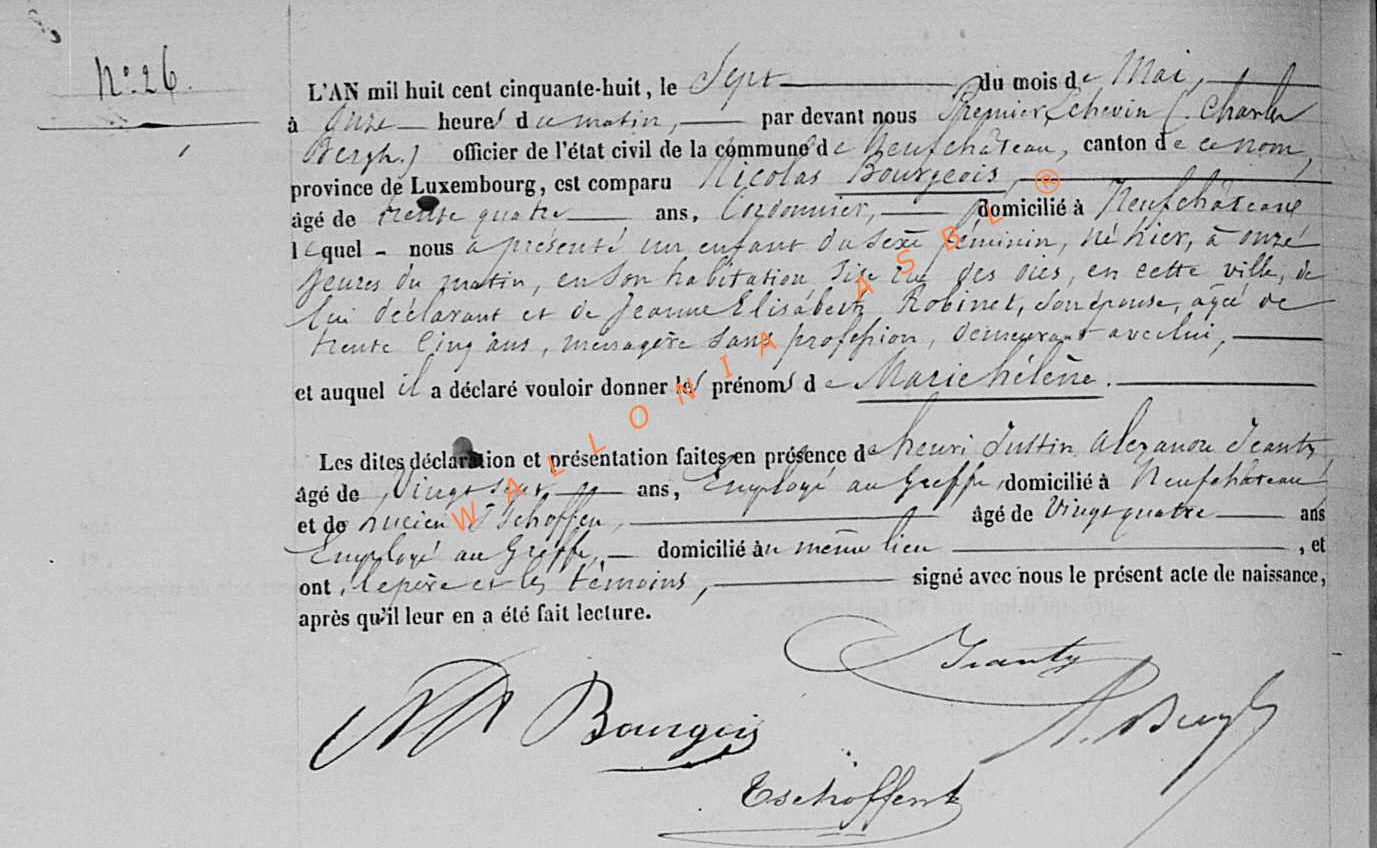 N° 26.
L'AN mil huit cent cinquante-huit, le Sept du mois de Mai,
à Onze heures du matin, par devant nous Premier Echevin (Charles
Bergh.) officier de l'état civil de la commune de Neufchâteau, canton de ce nom,
province de Luxembourg, est comparu Nicolas Bourgeois,
âgé de trente quatre ans, Cordonnier, domicilié à Neufchâteau
lequel - nous a présenté un enfant du sexe féminin, né hier, à onze
heures du matin, en son habitation sise rue des oies, en cette ville, de
lui déclarant et de Jeanne Elisabeth Robinet, son épouse, âgée de
trente cinq ans, ménagère sans profession, demeurant avec lui,
et auquel il a déclaré vouloir donner les prénoms de Marie hélène.
Les dites déclaration et présentation faites en présence de henri Justin Alexandre Jeanty
âgé de Vingt ans, Employé au Greffe, domicilié à Neufchâteau
et de Lucien Tschoffen, âgé de Vingt quatre ans
Employé au Greffe, domicilié au même lieu, et
ont, le père et les témoins, signé avec nous le présent acte de naissance,
après qu'il leur en a été fait lecture.
Jeanty
N Bourgois
Tschoffent
WALLONIA ASBL ®